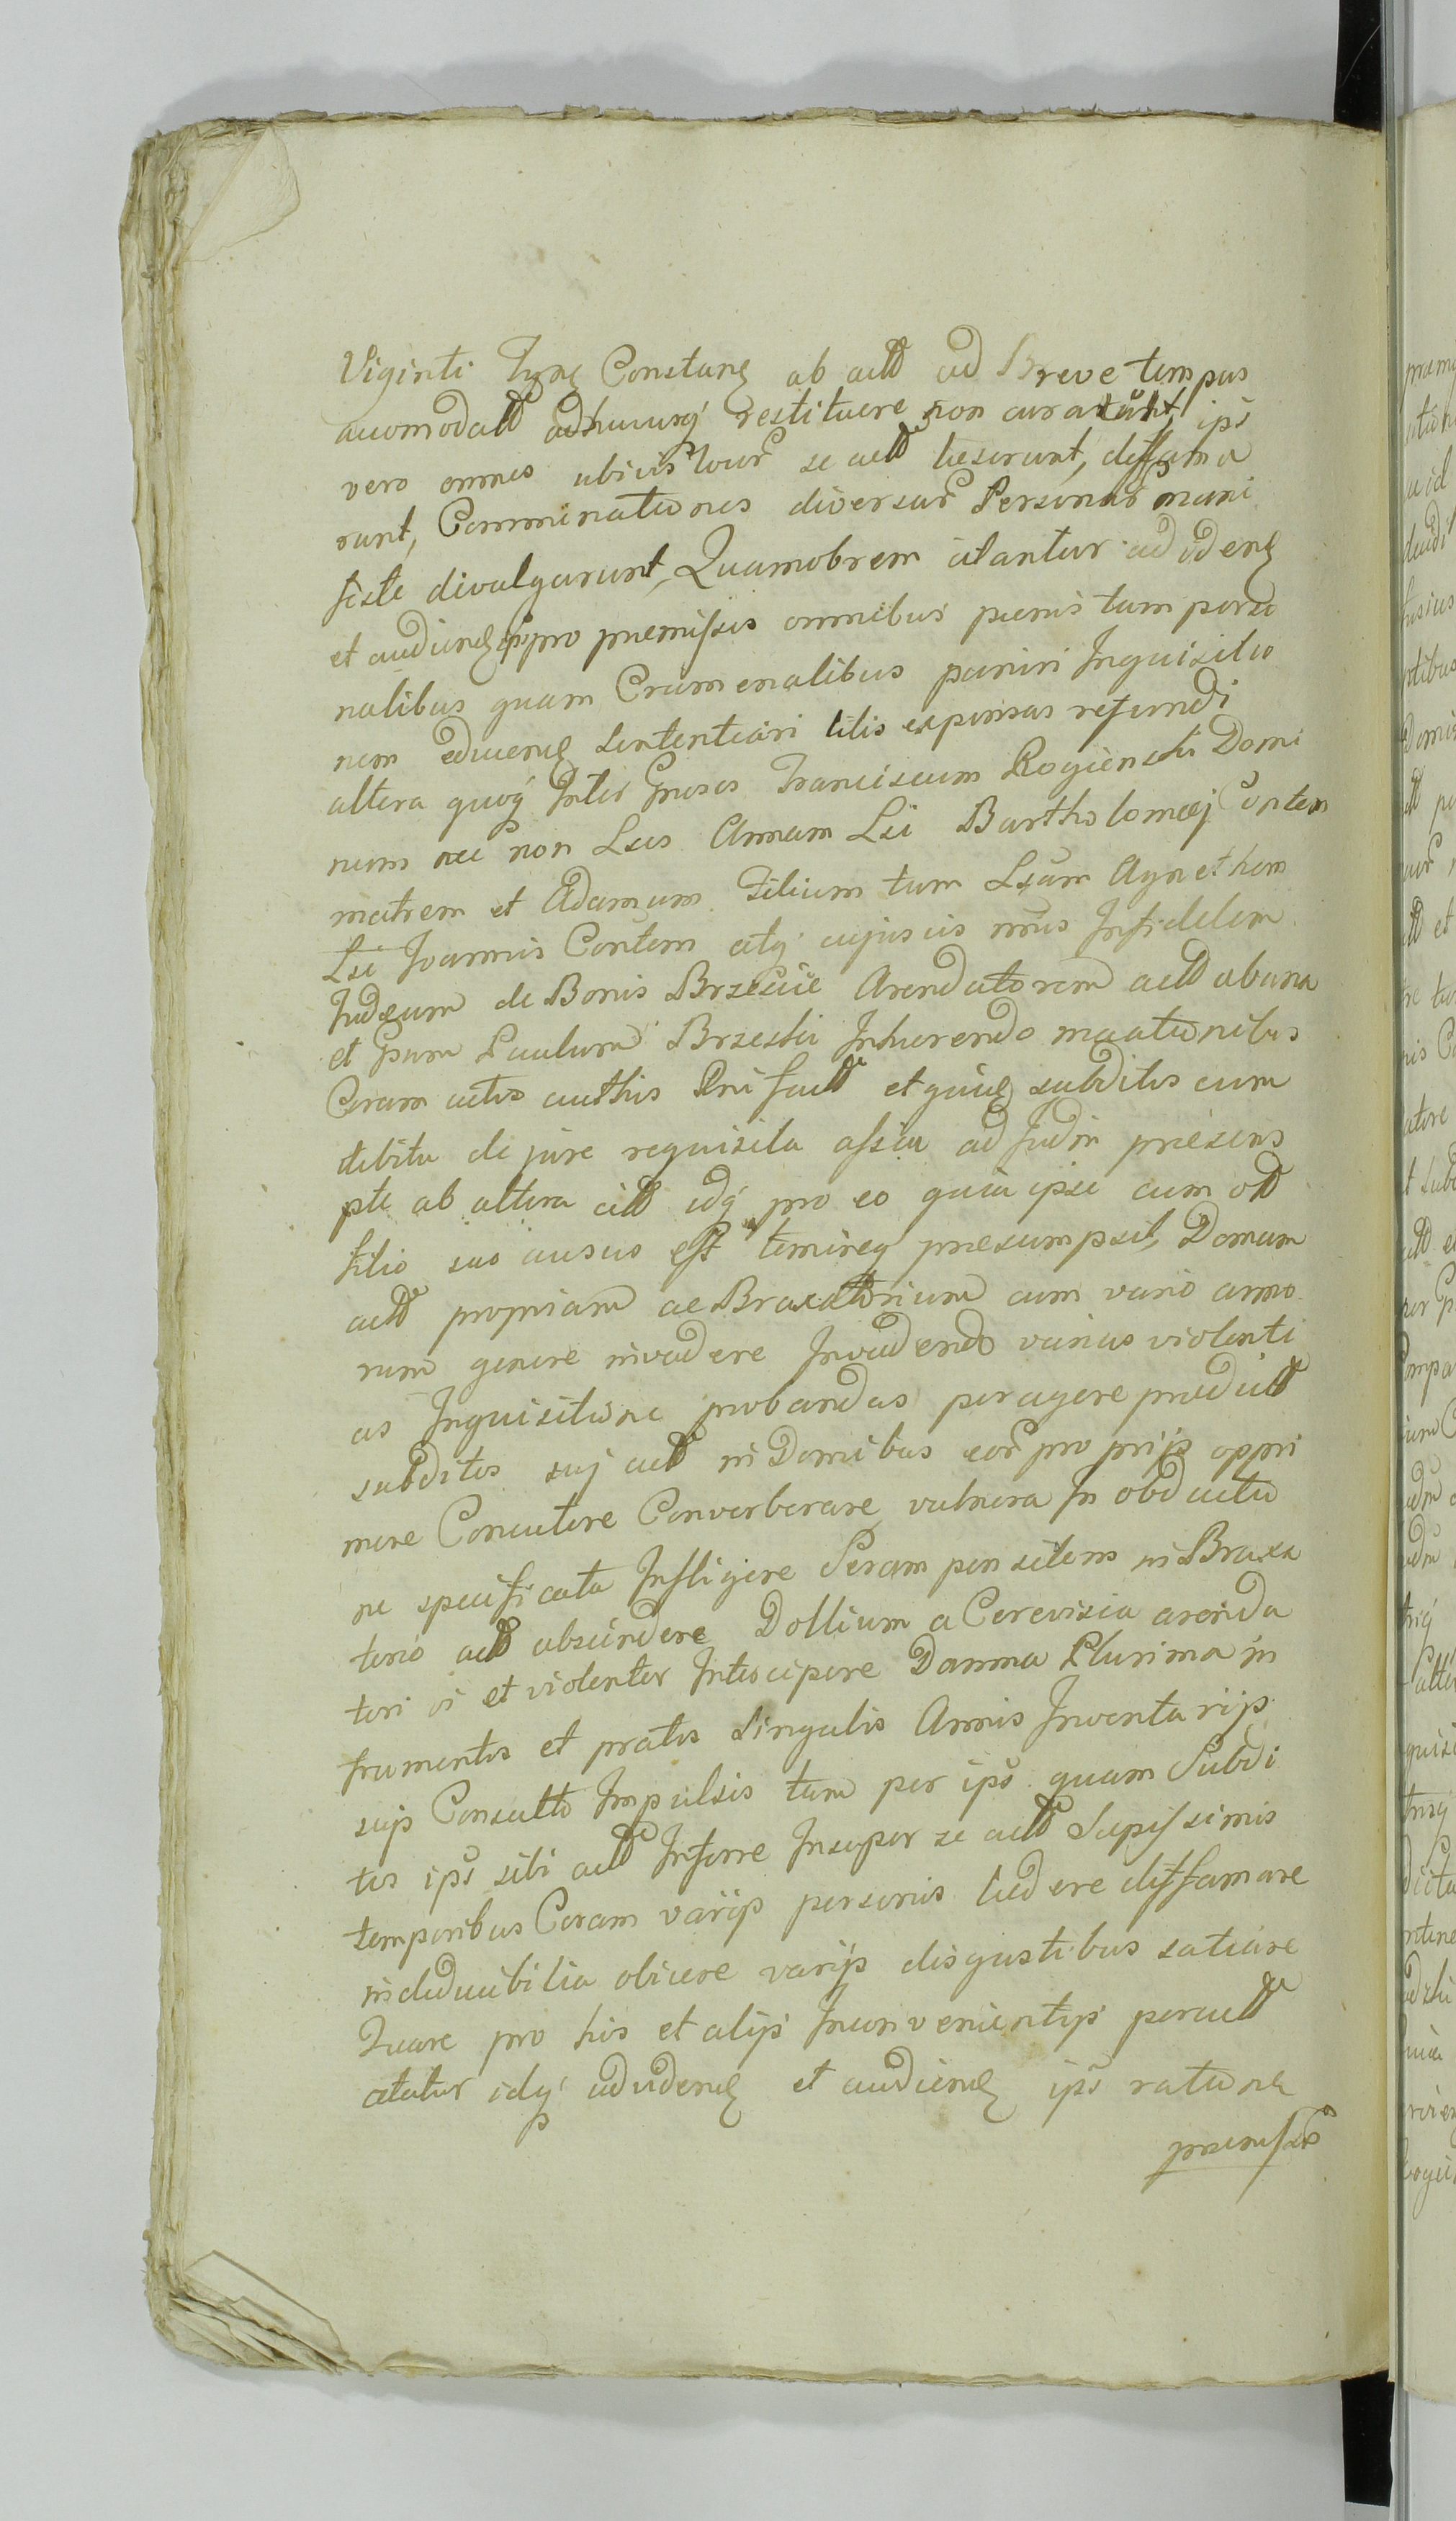 Viginti Constan ab act ad Breve tempus
acomodatt adhucusq restituere non curarunt, ips
vero omnes ubivis locor se actt læserunt, diffama
runt, Comminationes diversar Personar mani
feste divulgarunt, Quamobrem citantur ad viden
et audien pro præmissis omnibus pænis tam perso
nalibus quam Crumenalibus puniri Inquisitio
nem educen sententiari litis expensas refundi
altera quoq Inter Gnosos Franciscum Rogienski Domi
num nec non Lsus Annam Lsi Bartholomæj Contem
matrem et Adamum Filium tum Lsam Agnethem
Lsi Joannis Contem atq cujusvis Infidelem
Judæum de Bonis Brzescie Arendatorem actt ab una
et Gsum Paulum Brzeski Inhærendo
Coram actis authis Pni factt et quid subditis cum
debita de jure requisita assia ad Judm præsens
pte ab altera citt idq pro eo quia ipse cum
filio suo ausus est temereq præsumpsit, Domum
actt propriam ac Braxatorium cum vario armo
rum genere invadere Invadendo varias violenti
as Inquisitione probandas peragere prædictt
subditos suj actt in Domibus eor proprijs oppri
mere Concutere Converberare vulnera In obductio
ne specificata Infligere Seram pensilem in Braxa
torio actt abscindere Dollium a Cerevisia arenda
tori vi et violenter Intercipere Damna Plurima in
frumentis et pratis singulis Annis Inventarijs
suijs Consulto Impulsis tam per ips quam Subdi
tos ips sibi actt Inferre Insuper se actt Sæpissimis
temporibus Coram varijs personis lædere diffamare
indeducibilia obicere varijs disgustibus satiare
Quare pro his et alijs Inconvenientijs peractt
citatur idq ad viden et audien ips ratione
præmissor